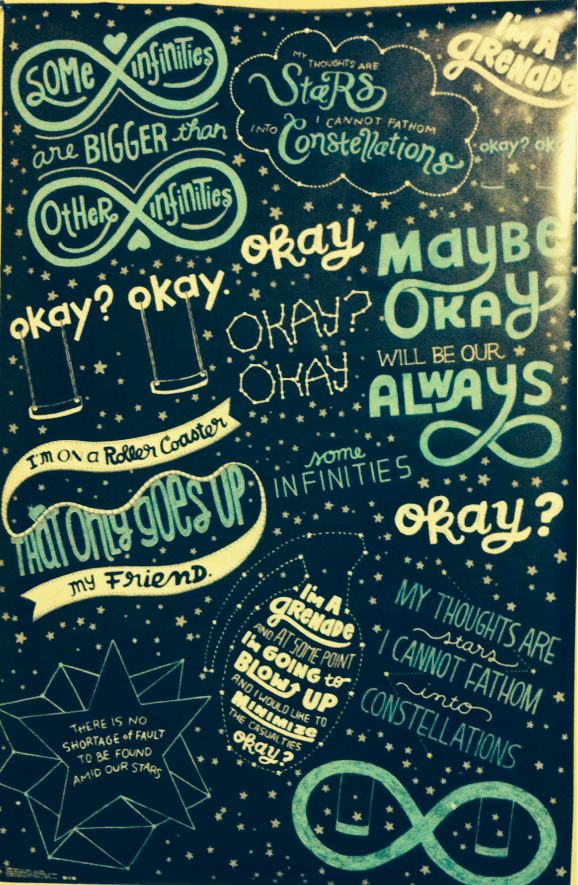 SOME infinities
are BIGGER than
OtHeR infinities
MY THOUGHTS ARE
StaRS
I CANNOT FATHOM
INTO Constellations
I'M A
gReNaDe
okay? ok
okay
MaYBe
OKAY
WILL BE OUR
ALWAYS
okay? okay.
OKAY?
OKAY
I'M ON a Roller Coaster
tHat Only goes UP
MY FRieND.
some
INFINITIES
okay?
I'm A
gReNaDe
AND AT SOME POINT
I'M GOING to
BLOW UP
AND I WOULD LIKE TO
MINIMIZE
THE CASUALTIES
okay?
MY THOUGHTS ARE
stars
I CANNOT FATHOM
into
CONSTELLATIONS
THERE IS NO
SHORTAGE of FAULT
TO BE FOUND
AMID OUR STARS